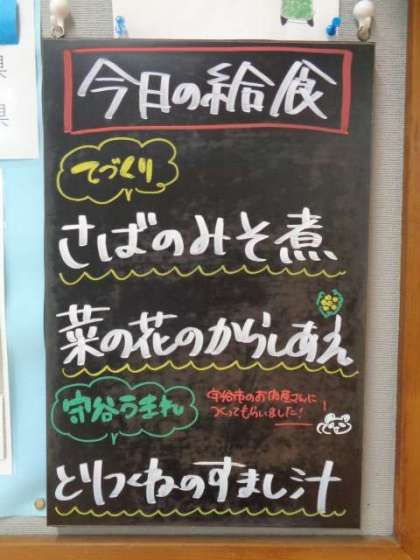 県
県
今日の給食
てづくり
さばのみそ煮
菜の花のからしあえ
守谷うまれ
守谷市のお肉屋さんに
つくってもらいました!
とりつくねのすまし汁